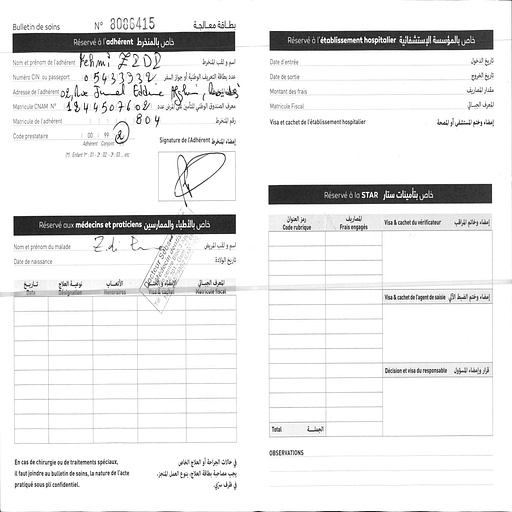 Bulletin de soins N° 3086415 بطاقة معالجة
Réservé à l'adhérent خاص بالمنخرط
Nom et prénom de l'adhérent Fehmi ZIDI اسم و لقب المنخرط
Numéro CIN ou passeport 05433332 عدد بطاقة التعريف الوطنية أو جواز السفر
Adresse de l'adhérent 02, Rue Jamal Eddine
Matricule CNAM N° 1244507602 معرف الصندوق الوطني للتأمين على المرض عدد
Matricule de l'adhérent 804 رقم المنخرط
Code prestataire 00 99 2
Adhérent Conjoint
Signature de l'Adhérent إمضاء المنخرط
Réservé aux médecins et praticiens خاص بالأطباء والممارسين
Nom et prénom du malade اسم و لقب المريض
Date de naissance تاريخ الولادة
تاريخ نوعية العلاج الأتعاب الإمضاء و الختم المعرف الجبائي
Date Désignation Honoraires Visa & cachet Matricule fiscal
En cas de chirurgie ou de traitements spéciaux,
il faut joindre au bulletin de soins, la nature de l'acte
pratiqué sous pli confidentiel.
في حالات الجراحة أو العلاج الخاص
يجب مصاحبة بطاقة العلاج، بنوع العمل المنجز،
في ظرف سري.
Réservé à l'établissement hospitalier خاص بالمؤسسة الإستشفائية
Date d'entrée تاريخ الدخول
Date de sortie تاريخ الخروج
Montant des frais مقدار المصاريف
Matricule Fiscal المعرف الجبائي
Visa et cachet de l'établissement hospitalier إمضاء وختم المستشفى أو المصحة
Réservé à la STAR خاص بتأمينات ستار
رمز العنوان المصاريف
Code rubrique Frais engagés
Visa & cachet du vérificateur إمضاء وخاتم المراقب
Visa & cachet de l'agent de saisie
Décision et visa du responsable قرار وإمضاء المسؤول
Total الجملة
OBSERVATIONS